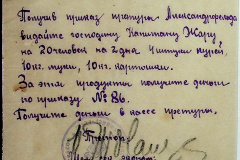 Получив приказ претуры Александрфельда
выдайте господину Капитану Жаку,
на 20 человек на 2 дня 4 штуки курей,
10 кг. муки, 10 кг. картошки.
За эти продукты получите деньги
по приказу № 86.
Получите деньги в кассе претуры.
Претор: